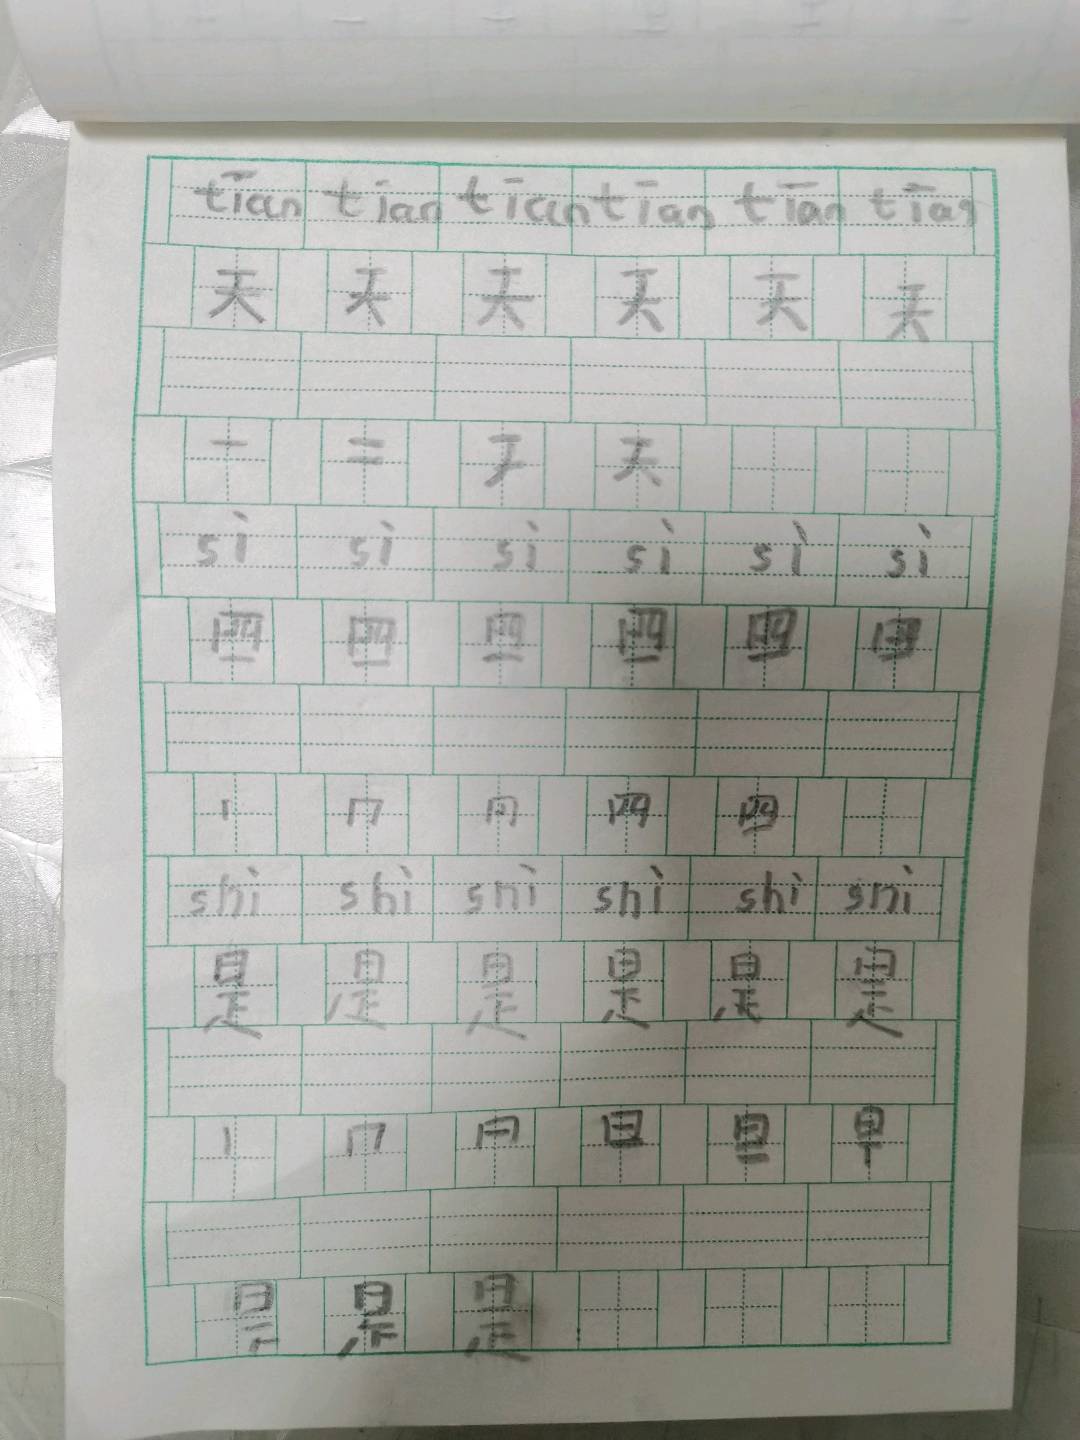 tiān tiān tiān tiān tiān tiān
天 天 天 天 天 天
一 二 天
sì sì sì sì sì sì
四 四 四 四 四 四
丨 冂 四 四
shì shì shì shì shì shì
是 是 是 是 是 是
丨 冂 日 旦
是 是